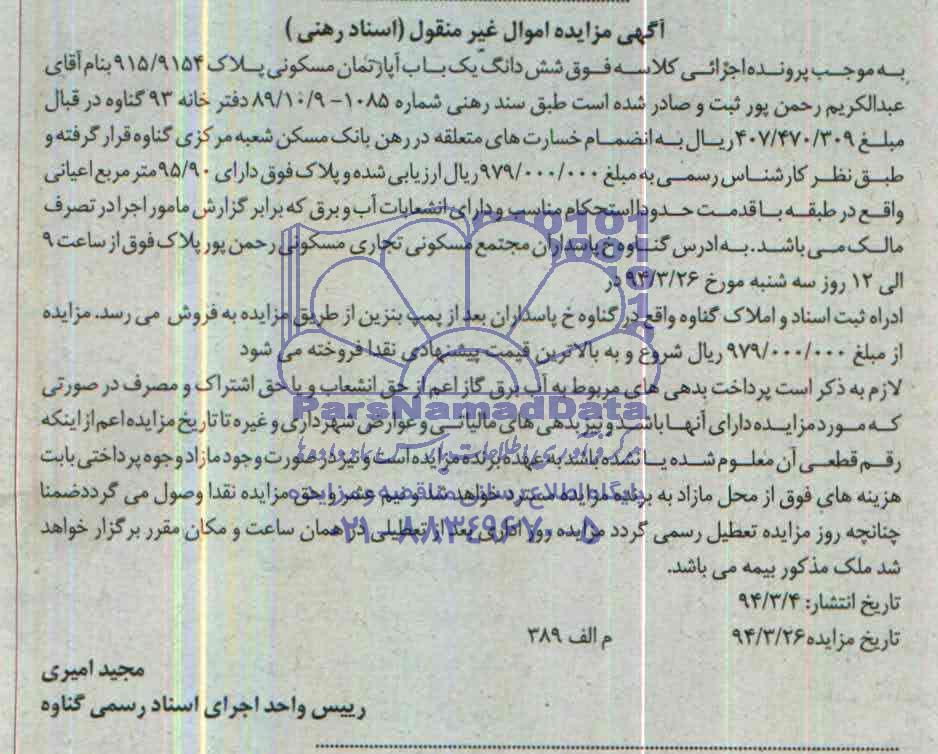 آگهی مزایده اموال غیر منقول (اسناد رهنی)
به موجب پرونده اجرائی کلاسه فوق شش دانگ یک باب آپارتمان مسکونی پلاک ۹۱۵/۹۱۵۴ بنام آقای
عبدالکریم رحمن پور ثبت و صادر شده است طبق سند رهنی شماره ۱۰۸۵- ۸۹/۱۰/۹ دفتر خانه ۹۳ گناوه در قبال
مبلغ ۴۰۷/۴۷۰/۳۰۹ ریال به انضمام خسارت های متعلقه در رهن بانک مسکن شعبه مرکزی گناوه قرار گرفته و
طبق نظر کارشناس رسمی به مبلغ ۹۷۹/۰۰۰/۰۰۰ ریال ارزیابی شده و پلاک فوق دارای ۹۵/۹۰ متر مربع اعیانی
واقع در طبقه با قدمت حدودا استحکام مناسب و دارای انشعابات آب و برق که برابر گزارش مامور اجرا در تصرف
مالک می باشد. به ادرس گناوه خ پاسداران مجتمع مسکونی تجاری مسکونی رحمن پور پلاک فوق از ساعت ۹
الی ۱۲ روز سه شنبه مورخ ۹۴/۳/۲۶ در
ادراه ثبت اسناد و املاک گناوه واقع در گناوه خ پاسداران بعد از پمپ بنزین از طریق مزایده به فروش می رسد. مزایده
از مبلغ ۹۷۹/۰۰۰/۰۰۰ ریال شروع و به بالاترین قیمت پیشنهادی نقدا فروخته می شود
لازم به ذکر است پرداخت بدهی های مربوط به آب برق گاز اعم از حق انشعاب و یا حق اشتراک و مصرف در صورتی
که مورد مزایده دارای آنها باشد و نیز بدهی های مالیاتی و عوارض شهرداری و غیره تا تاریخ مزایده اعم از اینکه
رقم قطعی آن معلوم شده یا نشده باشد به عهده برنده مزایده است و نیز در صورت وجود مازاد وجوه پرداختی بابت
هزینه های فوق از محل مازاد به برنده مزایده مسترد خواهد شد و نیم عشر و حق مزایده نقدا وصول می گردد ضمنا
چنانچه روز مزایده تعطیل رسمی گردد مزایده روز اداری بعد از تعطیلی در همان ساعت و مکان مقرر برگزار خواهد
شد ملک مذکور بیمه می باشد.
تاریخ انتشار: ۹۴/۳/۴
تاریخ مزایده ۹۴/۳/۲۶ م الف ۳۸۹
مجید امیری
رییس واحد اجرای اسناد رسمی گناوه
ParsNamadData
پایگاه اطلاع رسانی مناقصه و مزایده
۰۲۱-۸۸۳۴۹۶۷۰-۵